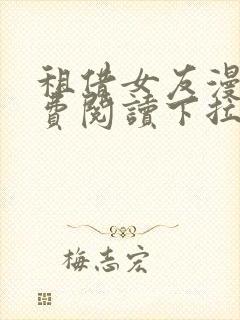 租借女友漫
費閱讀下拉
梅志宏